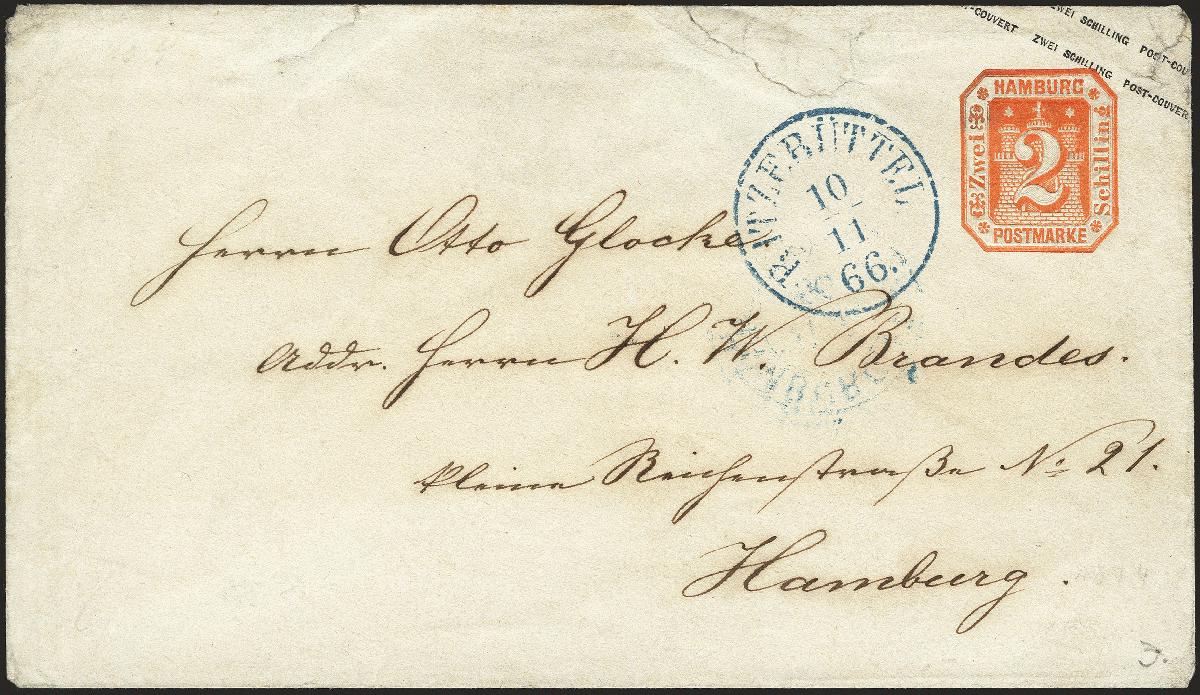 ZWEI SCHILLING POST-COU
COUVERT ZWEI SCHILLING POST-COUVER
HAMBURG
Zwei
2
Schilling
POSTMARKE
RITZEBÜTTEL
10
11
66.
Herrn Otto Glocke
Addr. Herrn H. W. Brandes.
kleine Reichenstraße No 21.
Hamburg.